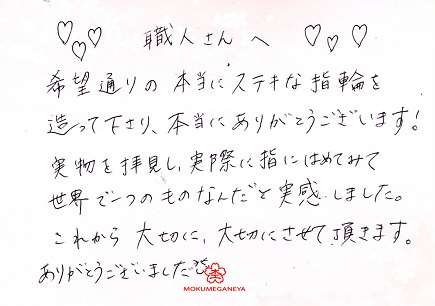 職人さんへ
希望通りの本当にステキな指輪を
造って下さり、本当にありがとうございます!
実物を拝見し、実際に指にはめてみて
世界で一つのものなんだと実感しました。
これから大切に、大切にさせて頂きます。
ありがとうございました
MOKUMEGANEYA